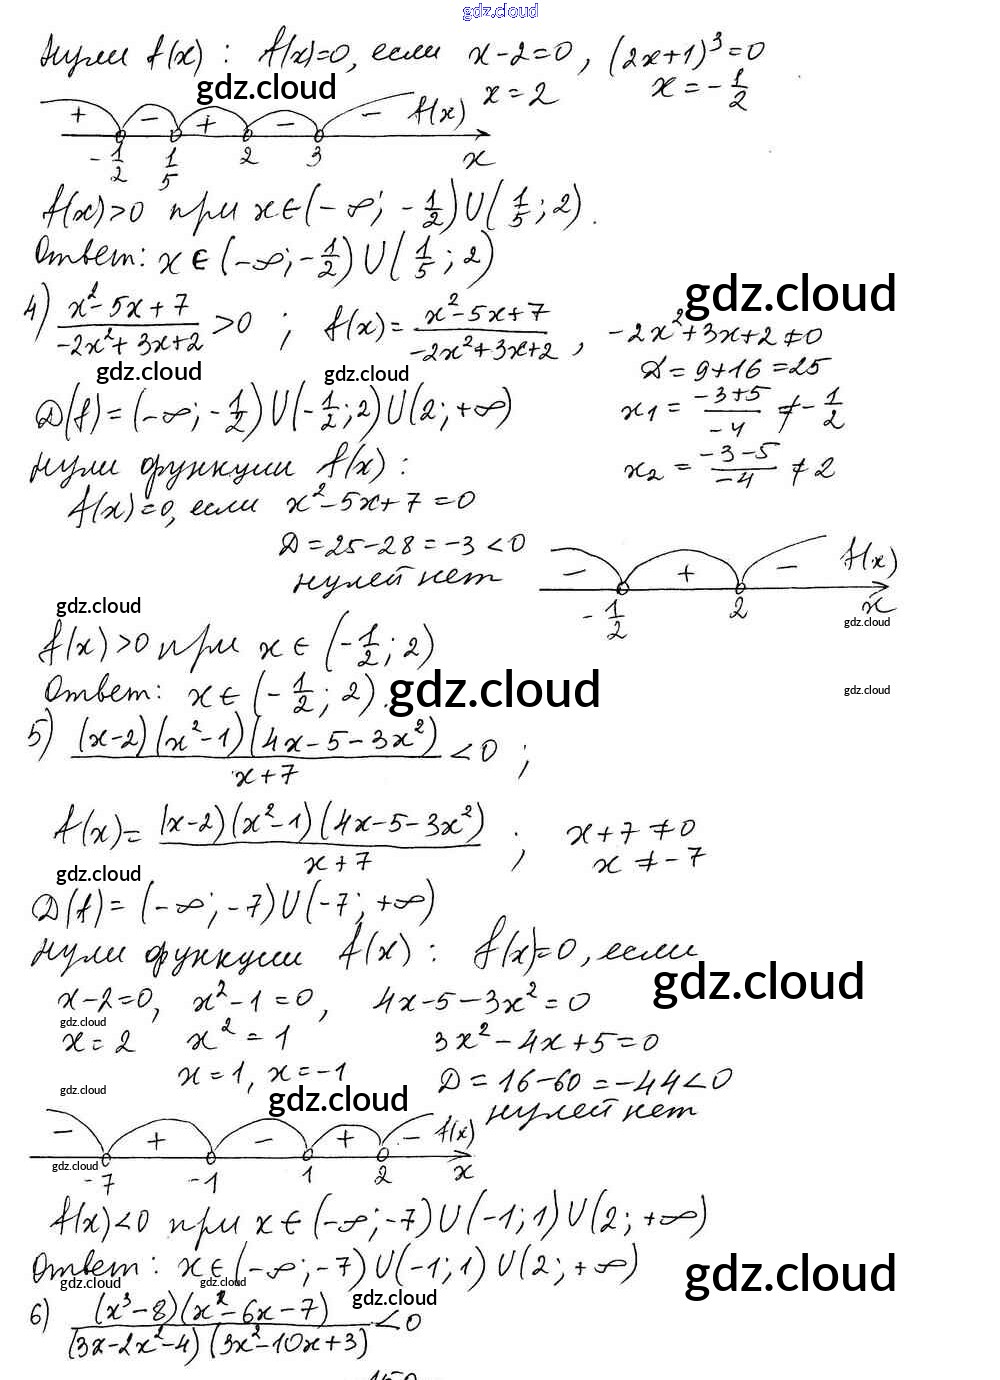 gdz.cloud
Нули f(x) : f(x)=0, если x-2=0, (2x+1)³=0
gdz.cloud x=2 x=-1/2
+ - + - - f(x)
-1/2 1/5 2 3 x
f(x)>0 при x∈(-∞; -1/2)U(1/5; 2).
Ответ: x∈(-∞; -1/2)U(1/5; 2)
gdz.cloud
4) (x²-5x+7)/(-2x²+3x+2) >0 ; f(x)=(x²-5x+7)/(-2x²+3x+2), -2x²+3x+2≠0
gdz.cloud gdz.cloud D=9+16=25
D(f)=(-∞; -1/2)U(-1/2; 2)U(2; +∞) x1=(-3+5)/(-4)≠-1/2
нули функции f(x): x2=(-3-5)/(-4)≠2
f(x)=0, если x²-5x+7=0
D=25-28=-3<0
нулей нет
- + - f(x)
-1/2 2 x
gdz.cloud gdz.cloud
f(x)>0 при x∈(-1/2; 2)
Ответ: x∈(-1/2; 2). gdz.cloud gdz.cloud
5) ((x-2)(x²-1)(4x-5-3x²))/(x+7) <0 ;
f(x)=((x-2)(x²-1)(4x-5-3x²))/(x+7) ; x+7≠0
x≠-7
gdz.cloud
D(f)=(-∞; -7)U(-7; +∞)
нули функции f(x): f(x)=0, если
gdz.cloud
x-2=0, x²-1=0, 4x-5-3x²=0
gdz.cloud
x=2 x²=1 3x²-4x+5=0
x=1, x=-1 D=16-60=-44<0
gdz.cloud gdz.cloud нулей нет
- + - + - f(x)
gdz.cloud
-7 -1 1 2 x
f(x)<0 при x∈(-∞; -7)U(-1; 1)U(2; +∞)
Ответ: x∈(-∞; -7)U(-1; 1)U(2; +∞)
gdz.cloud gdz.cloud gdz.cloud gdz.cloud
6) ((x³-8)(x²-6x-7))/((3x-2x²-4)(3x²-10x+3)) <0